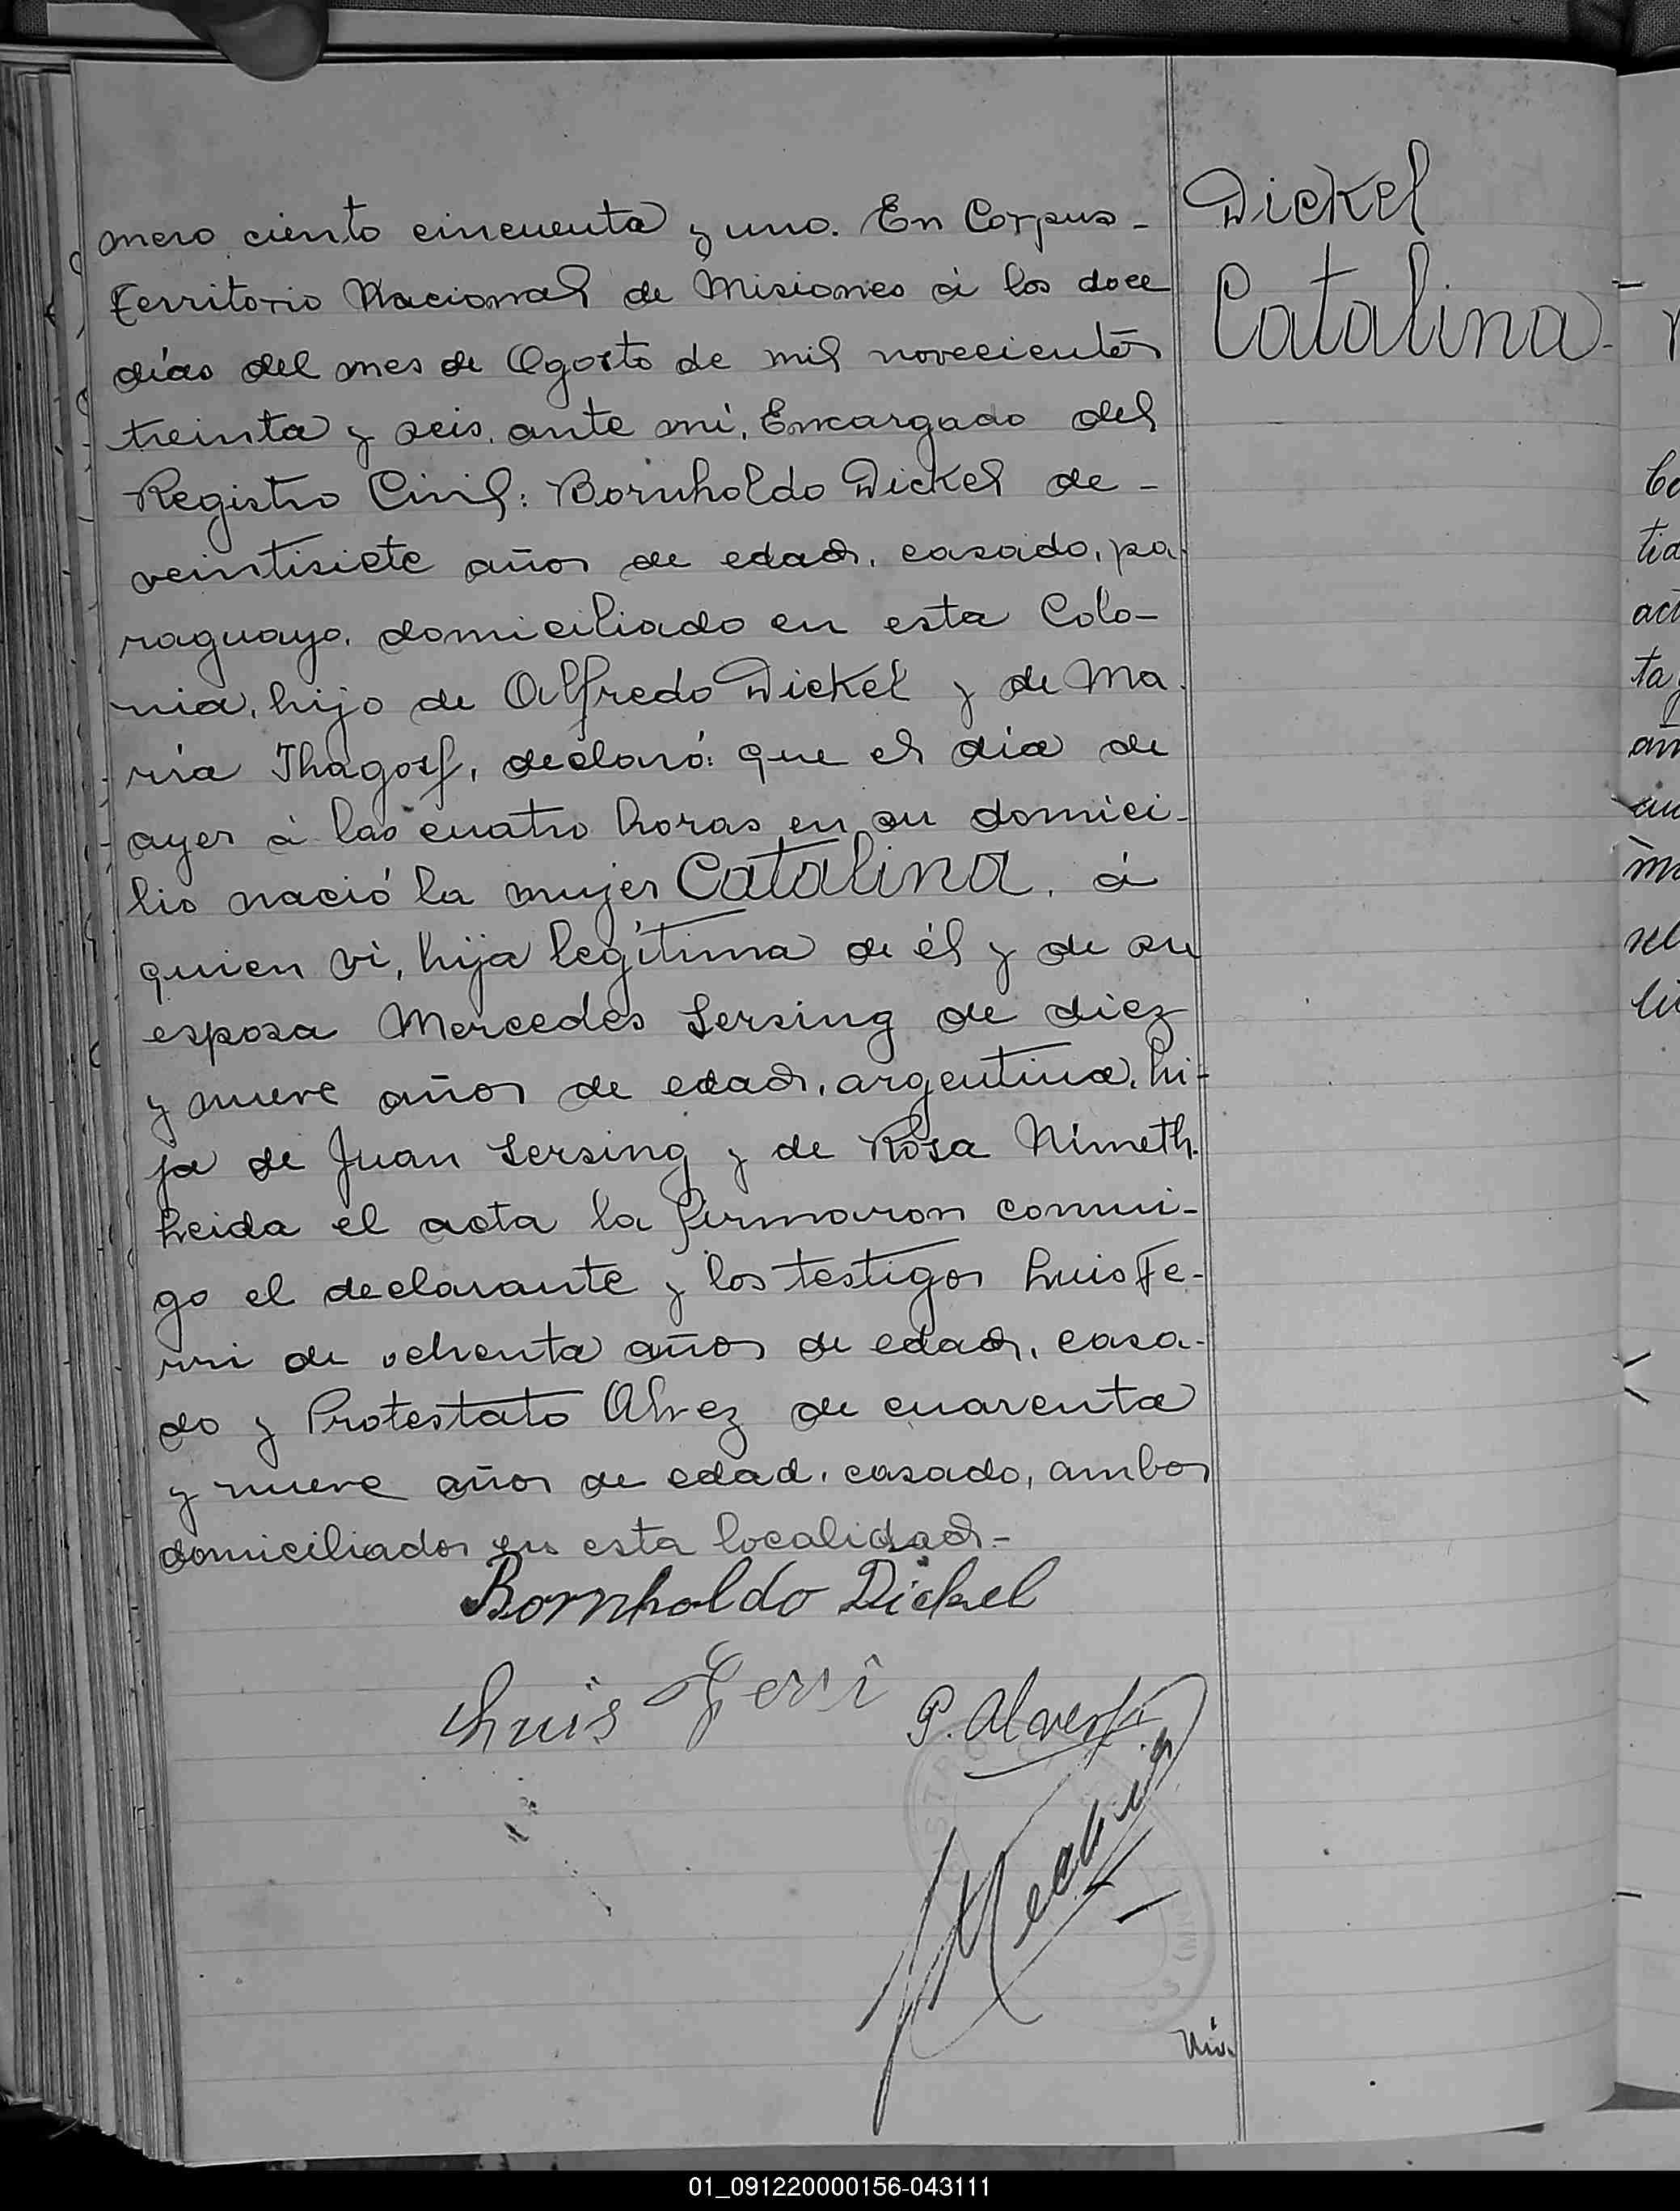 Dickel
Catalina -
mero ciento cincuenta y uno. En Corpus -
Territorio Nacional de Misiones á los doce
días del mes de Agosto de mil novecientos
treinta y seis, ante mí, Encargado del
Registro Civil: Bornholdo Dickel de -
veintisiete años de edad, casado, pa-
raguayo, domiciliado en esta Colo-
nia, hijo de Alfredo Dickel y de Ma-
ría declaró: que el día de
ayer á las cuatro horas en su domici-
lio nació la mujer Catalina, á
quien ví, hija legítima de él y de su
esposa Mercedes Lersing de diez
y nueve años de edad, argentina, hi-
ja de Juan Lersing y de Rosa Nimeth.
Leida el acta la firmaron conmi-
go el declarante y los testigos Luis Fe-
rri de ochenta años de edad, casa-
do y Protestato Alvez de cuarenta
y nueve años de edad, casado, ambos
domiciliados en esta localidad. -
Bornholdo Dickel
Luis Ferri P.
01_091220000156-043111